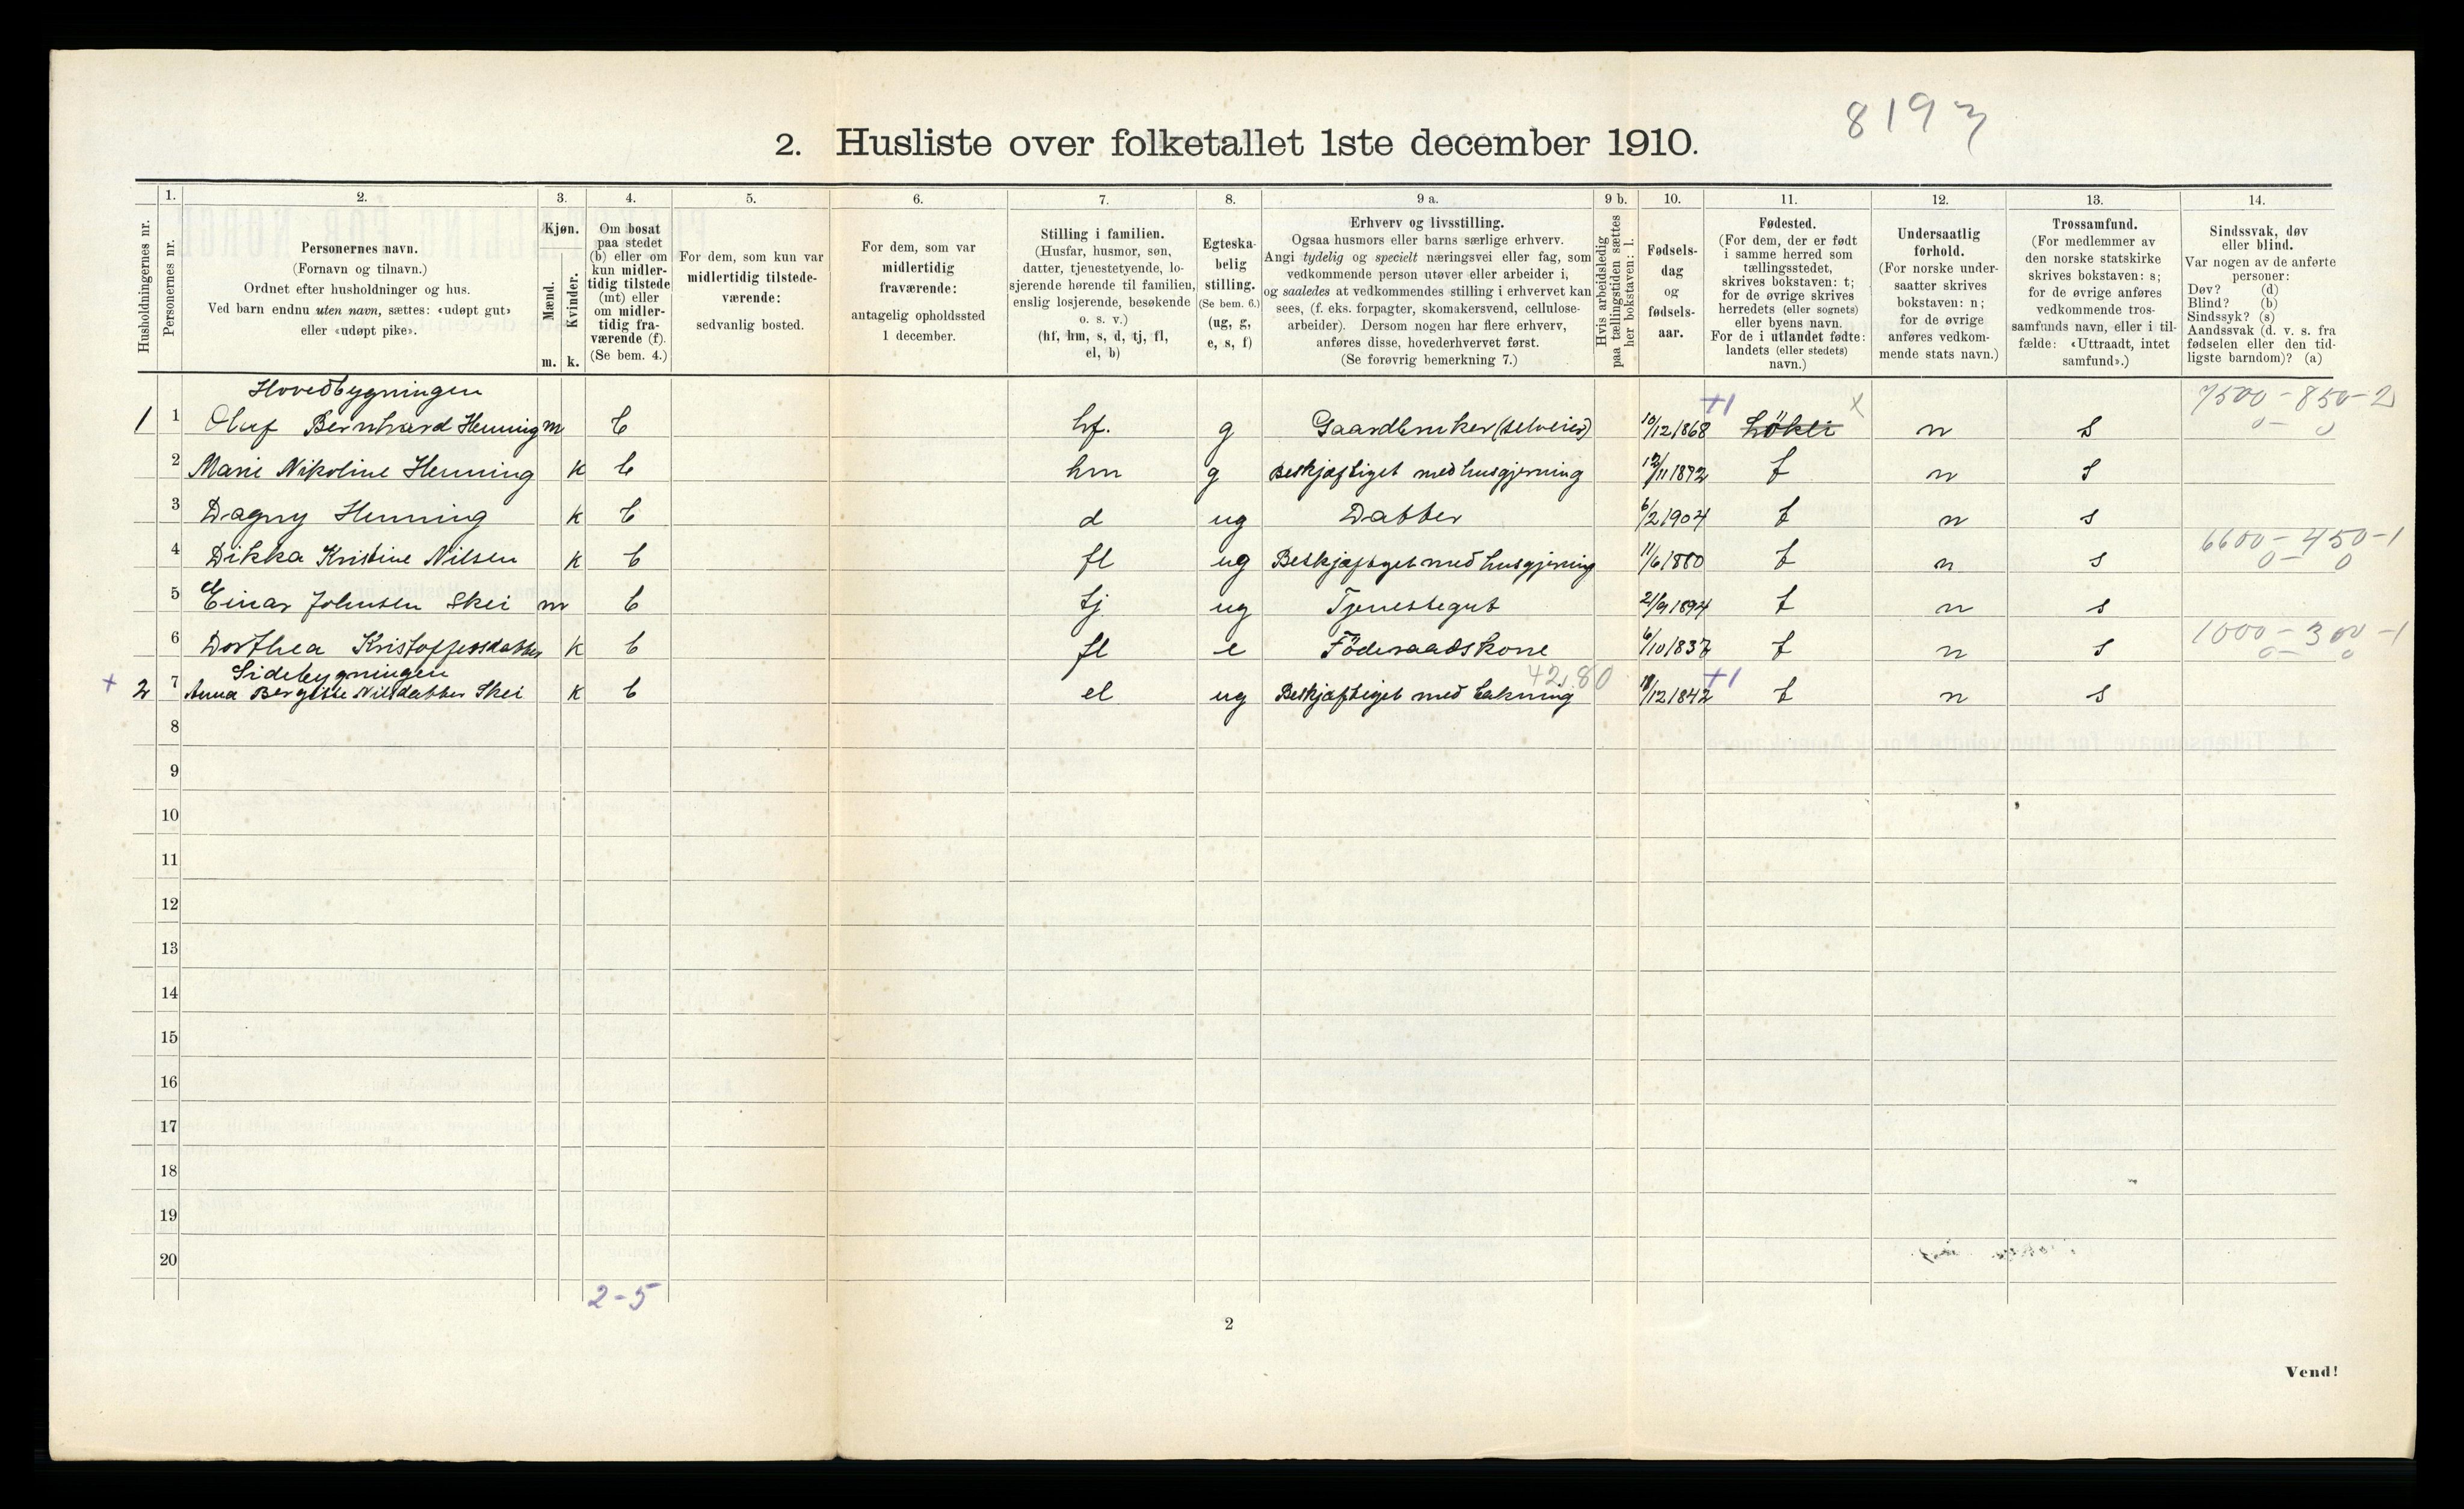 8193
2. Husliste over folketallet 1ste december 1910.
Husholdningernes nr.
1.
Personernes nr.
2.
Personernes navn.
(Fornavn og tilnavn.)
Ordnet efter husholdninger og hus.
Ved barn endnu uten navn, sættes: «udøpt gut»
eller «udøpt pike».
3.
Kjøn.
Mænd.
Kvinder.
m. k.
4.
Om bosat
paa stedet
(b) eller om
kun midler-
tidig tilstede
(mt) eller
om midler-
tidig fra-
værende (f).
(Se bem. 4.)
5.
For dem, som kun var
midlertidig tilstede-
værende:
sedvanlig bosted.
6.
For dem, som var
midlertidig
fraværende:
antagelig opholdssted
1 december.
7.
Stilling i familien.
(Husfar, husmor, søn,
datter, tjenestetyende, lo-
sjerende hørende til familien,
enslig losjerende, besøkende
o. s. v.)
(hf, hm, s, d, tj, fl,
el, b)
8.
Egteska-
belig
stilling.
(Se bem. 6.)
(ug, g,
e, s, f)
9 a.
Erhverv og livsstilling.
Ogsaa husmors eller barns særlige erhverv.
Angi tydelig og specielt næringsvei eller fag, som
vedkommende person utøver eller arbeider i,
og saaledes at vedkommendes stilling i erhvervet kan
sees, (f. eks. forpagter, skomakersvend, cellulose-
arbeider). Dersom nogen har flere erhverv,
anføres disse, hovederhvervet først.
(Se forøvrig bemerkning 7.)
9 b.
Hvis arbeidsledig
paa tællingstiden sættes
her bokstaven: l.
10.
Fødsels-
dag
og
fødsels-
aar.
11.
Fødested.
(For dem, der er født
i samme herred som
tællingsstedet,
skrives bokstaven: t;
for de øvrige skrives
herredets (eller sognets)
eller byens navn.
For de i utlandet fødte:
landets (eller stedets)
navn.)
12.
Undersaatlig
forhold.
(For norske under-
saatter skrives
bokstaven: n;
for de øvrige
anføres vedkom-
mende stats navn.)
13.
Trossamfund.
(For medlemmer av
den norske statskirke
skrives bokstaven: s;
for de øvrige anføres
vedkommende tros-
samfunds navn, eller i til-
fælde: «Uttraadt, intet
samfund».)
14.
Sindssvak, døv
eller blind.
Var nogen av de anførte
personer:
Døv? (d)
Blind? (b)
Sindssyk? (s)
Aandssvak (d. v. s. fra
fødselen eller den tid-
ligste barndom)? (a)
Hovedbygningen
7500 - 850 - 2
1 1 Oluf Bernhard Henning m b hf. g Gaardbruker (selveier) 10/12 1868 +1 Lökei x n s 0 - 0
2 Marie Nikoline Henning k b hm g Beskjæftiget med husgjerning 12/11 1872 t n s
3 Dagny Henning k b d ug Datter 6/2 1904 t n s
6600 - 450 - 1
4 Dikka Kristine Nilsen k b fl ug Beskjæftiget med husgjerning 11/6 1880 t n s 0 - 0
5 Einar Johnsen Skei m b tj ug Tjenestegut 21/9 1894 t n s
1000 - 300 - 1
6 Dorthea Kristoffersdatter k b fl e Föderaadskone 6/10 1837 t n s 0 - 0
Sidebygningen
42,80
+ 2 7 Anna Bergitte Nilsdatter Skei k b el ug Beskjæftiget med bakning 18/12 1842 +1 t n s
8
9
10
11
12
13
14
15
16
17
18
19
20
2 - 5
2
Vend!